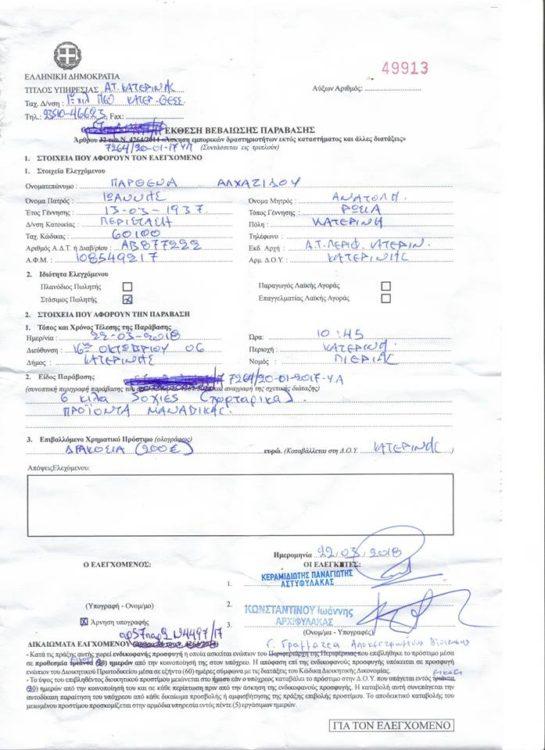 49913
ΕΛΛΗΝΙΚΗ ΔΗΜΟΚΡΑΤΙΑ
ΤΙΤΛΟΣ ΥΠΗΡΕΣΙΑΣ Α.Τ. ΚΑΤΕΡΙΝΗΣ
Αύξων Αριθμός:
Ταχ. Δ/νση: 1ο χιλ ΠΕΟ ΚΑΤΕΡ-ΘΕΣΣ.
Τηλ.: 23510-46623 Fax:
ΕΚΘΕΣΗ ΒΕΒΑΙΩΣΗΣ ΠΑΡΑΒΑΣΗΣ
Άρθρου 32 του Ν. 4264/2014 «Άσκηση εμπορικών δραστηριοτήτων εκτός καταστήματος και άλλες διατάξεις»
7264/20-01-17 ΥΑ (Συντάσσεται εις τριπλούν)
1. ΣΤΟΙΧΕΙΑ ΠΟΥ ΑΦΟΡΟΥΝ ΤΟΝ ΕΛΕΓΧΟΜΕΝΟ
1. Στοιχεία Ελεγχόμενου
Ονοματεπώνυμο : ΠΑΡΘΕΝΑ ΑΛΧΑΖΙΔΟΥ
Όνομα Πατρός : ΙΩΑΝΝΗΣ Όνομα Μητρός : ΑΝΑΤΟΛΗ
Έτος Γέννησης : 13-03-1937 Τόπος Γέννησης : ΡΩΣΙΑ
Δ/νση Κατοικίας : ΠΕΡΙΣΤΑΣΗ Πόλη : ΚΑΤΕΡΙΝΗ
Ταχ. Κώδικας : 60100 Τηλέφωνο :
Αριθμός Α.Δ.Τ. ή Διαβ/ρίου : ΑΒ877222 Εκδ. Αρχή : Α.Τ. ΠΕΡΙΦ. ΚΑΤΕΡΙΝ.
Α.Φ.Μ. : 108549217 Αρμ. Δ.Ο.Υ. : ΚΑΤΕΡΙΝΗΣ
2. Ιδιότητα Ελεγχόμενου
Πλανόδιος Πωλητής Παραγωγός Λαϊκής Αγοράς
Στάσιμος Πωλητής Επαγγελματίας Λαϊκής Αγοράς
2. ΣΤΟΙΧΕΙΑ ΠΟΥ ΑΦΟΡΟΥΝ ΤΗΝ ΠΑΡΑΒΑΣΗ
1. Τόπος και Χρόνος Τέλεσης της Παράβασης
Ημερ/νία : 22-03-2018 Ώρα: 10:45
Διεύθυνση : 16ης ΟΚΤΩΒΡΙΟΥ 06 Περιοχή : ΚΑΤΕΡΙΝΗ
Δήμος : ΚΑΤΕΡΙΝΗΣ Νομός : ΠΙΕΡΙΑΣ
2. Είδος Παράβασης 7264/20-01-2017-ΥΑ
(συνοπτική περιγραφή παράβασης και αναγραφή της σχετικής διάταξης)
6 κιλά ζοχιές (χορταρικά)
ΠΡΟΪΟΝΤΑ ΜΑΝΑΒΙΚΗΣ.
3. Επιβαλλόμενο Χρηματικό Πρόστιμο (ολογράφως)
ΔΙΑΚΟΣΙΑ (200€) ευρώ. (Καταβάλλεται στη Δ.Ο.Υ. ΚΑΤΕΡΙΝΗΣ
Απόψεις Ελεχόμενου:
Ημερομηνία 22.03.2018
Ο ΕΛΕΓΧΟΜΕΝΟΣ: ΟΙ ΕΛΕΓΚΤΕΣ:
1. ΚΕΡΑΜΙΔΙΩΤΗΣ ΠΑΝΑΓΙΩΤΗΣ
ΑΣΤΥΦΥΛΑΚΑΣ
(Υπογραφή - Ονομ/μο) 2. ΚΩΝΣΤΑΝΤΙΝΟΥ Ιωάννης
Άρνηση υπογραφής 3. ΑΡΧΙΦΥΛΑΚΑΣ
(Ονομ/μο - Υπογραφές)
αρ57παρ2 Ν4497/17
ΔΙΚΑΙΩΜΑΤΑ ΕΛΕΓΧΟΜΕΝΟΥ
- Κατά τις πράξης αυτής χωρεί ενδικοφανής προσφυγή η οποία ασκείται ενώπιον του Περιφερειάρχη της Περιφέρειας που επιβλήθηκε το πρόστιμο μέσα
σε προθεσμία ημερών από την κοινοποίησή της στον υπόχρεο. Η απόφαση επί της ενδικοφανούς προσφυγής υπόκειται σε προσφυγή
ενώπιον του Διοικητικού Πρωτοδικείου μέσα σε εξήντα (60) ημέρες σύμφωνα με τις διατάξεις του Κώδικα Διοικητικής Δικονομίας.
- Το ύψος του επιβληθέντος διοικητικού προστίμου μειώνεται στο ήμισυ εάν ο υπόχρεος καταβάλει το πρόστιμο στην Δ.Ο.Υ. που υπάγεται εντός
ημερών από την κοινοποίησή του και σε κάθε περίπτωση πριν από την άσκηση της ενδικοφανούς προσφυγής. Η καταβολή αυτή συνεπάγεται την
αυτοδίκαιη παραίτηση του υπόχρεου από κάθε δικαίωμα προσβολής ή αμφισβήτησης της πράξης επιβολής προστίμου. Το αποδεικτικό καταβολής του
μειωμένου προστίμου προσκομίζεται στην αρμόδια υπηρεσία εντός πέντε (5) εργασίμων ημερών.
ΓΙΑ ΤΟΝ ΕΛΕΓΧΟΜΕΝΟ